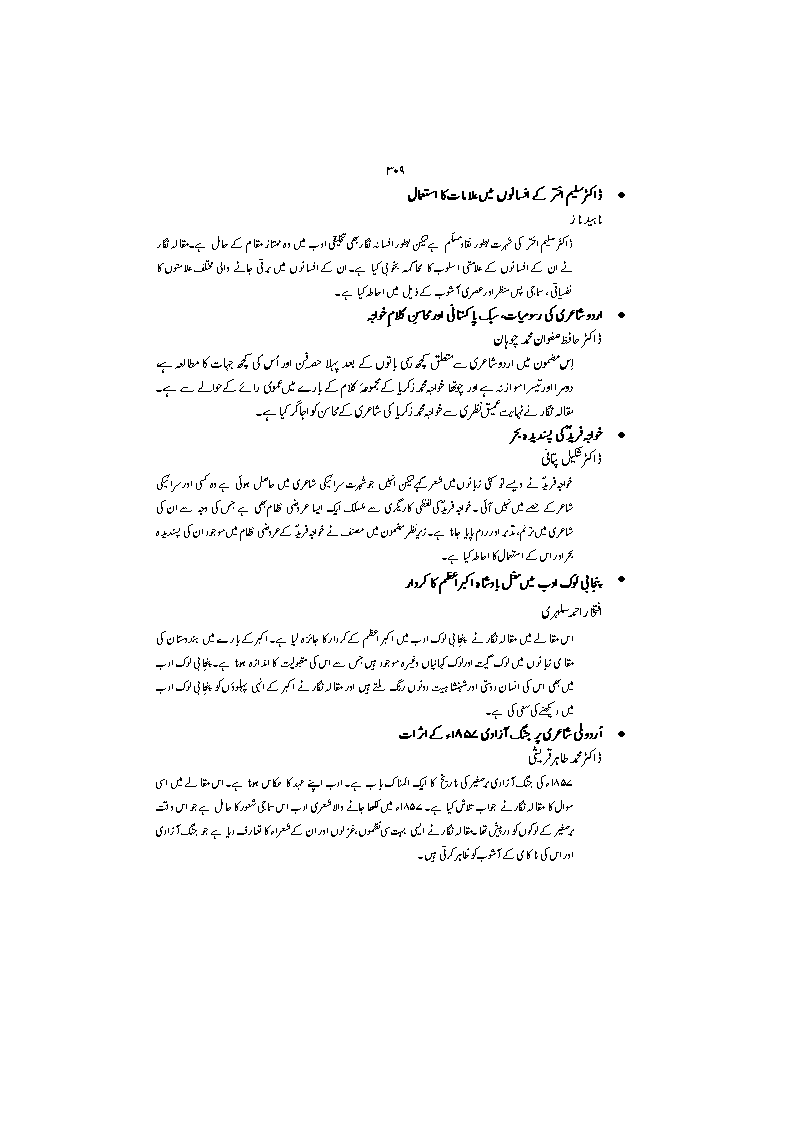 ۳۰۹
• ڈاکٹر سلیم اختر کے افسانوں میں علامات کا استعمال
ناہید ناز
ڈاکٹر سلیم اختر کی شہرت بطور نقاد مسلّم ہے لیکن بطور افسانہ نگار بھی تخلیقی ادب میں وہ ممتاز مقام کے حامل ہے۔ مقالہ نگار
نے ان کے افسانوں کے علامتی اسلوب کا محاکمہ بخوبی کیا ہے۔ ان کے افسانوں میں برتی جانے والی مختلف علامتوں کا
نفسیاتی، سماجی پس منظر اور عصری آشوب کے ذیل میں احاطہ کیا ہے۔
• اردو شاعری کی رسومیات، سبک پاکستانی اور محاسنِ کلامِ خواجہ
ڈاکٹر حافظ صفوان محمد چوہان
اِس مضمون میں اردو شاعری سے متعلق کچھ رسمی باتوں کے بعد پہلا حصہ فن اور اُس کی کچھ جہات کا مطالعہ ہے
دوسرا اور تیسرا موازنہ ہے اور چوتھا خواجہ محمد زکریا کے مجموعۂ کلام کے بارے میں عمومی رائے کے حوالے سے ہے۔
مقالہ نگار نے نہایت عمیق نظری سے خواجہ محمد زکریا کی شاعری کے محاسن کو اجاگر کیا ہے۔
• خواجہ فریدؒ کی پسندیدہ بحر
ڈاکٹر شکیل پتافی
خواجہ فریدؒ نے ویسے تو کئی زبانوں میں شعر کہے لیکن انہیں جو شہرت سرائیکی شاعری میں حاصل ہوئی ہے وہ کسی اور سرائیکی
شاعر کے حصے میں نہیں آئی۔ خواجہ فریدؒ کی لفظی کاریگری سے منسلک ایک ایسا عروضی نظام بھی ہے جس کی وجہ سے ان کی
شاعری میں ترنم، تدبر اور ردم پایا جاتا ہے۔ زیر نظر مضمون میں مصنف نے خواجہ فریدؒ کے عروضی نظام میں موجود ان کی پسندیدہ
بحر اور اس کے استعمال کا احاطہ کیا ہے۔
• پنجابی لوک ادب میں مغل بادشاہ اکبر اعظم کا کردار
افتخار احمد سلہری
اس مقالے میں مقالہ نگار نے پنجابی لوک ادب میں اکبر اعظم کے کردار کا جائزہ لیا ہے۔ اکبر کے بارے میں ہندوستان کی
مقامی زبانوں میں لوک گیت اور لوک کہانیاں وغیرہ موجود ہیں جس سے اس کی مقبولیت کا اندازہ ہوتا ہے۔ پنجابی لوک ادب
میں بھی اس کی انسان دوستی اور شہنشاہیت دونوں رنگ ملتے ہیں اور مقالہ نگار نے اکبر کے انہی پہلوؤں کو پنجابی لوک ادب
میں دیکھنے کی سعی کی ہے۔
• اُردو ملی شاعری پر جنگ آزادی ۱۸۵۷ء کے اثرات
ڈاکٹر محمد طاہر قریشی
۱۸۵۷ء کی جنگ آزادی برصغیر کی تاریخ کا ایک المناک باب ہے۔ ادب اپنے عہد کا عکاس ہوتا ہے۔ اس مقالے میں اسی
سوال کا مقالہ نگار نے جواب تلاش کیا ہے۔ ۱۸۵۷ء میں لکھا جانے والا شعری ادب اس سماجی شعور کا حامل ہے جو اس وقت
برصغیر کے لوگوں کو درپیش تھا۔ مقالہ نگار نے ایسی بہت سی نظموں، غزلوں اور ان کے شعراء کا تعارف دیا ہے جو جنگ آزادی
اور اس کی ناکامی کے آشوب کو ظاہر کرتی ہیں۔